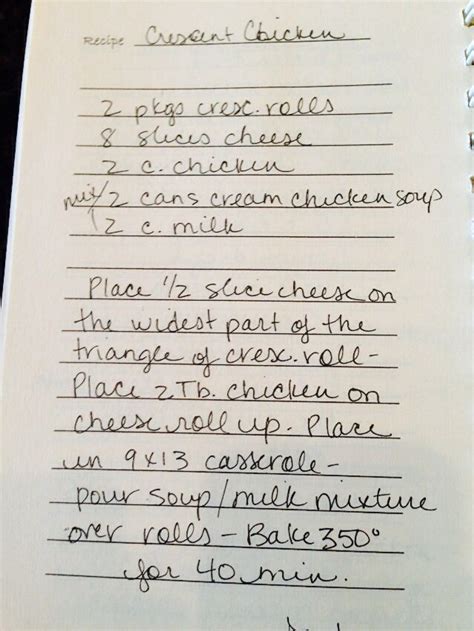 Recipe Crescent Chicken
2 pkgs cresc. rolls
8 slices cheese
2 c. chicken
mix 2 cans cream chicken soup
2 c. milk
Place 1/2 slice cheese on
the widest part of the
triangle of cresc. roll-
Place 2 Tb. chicken on
cheese, roll up. Place
in 9x13 casserole-
pour soup/milk mixture
over rolls - Bake 350°
for 40 min.